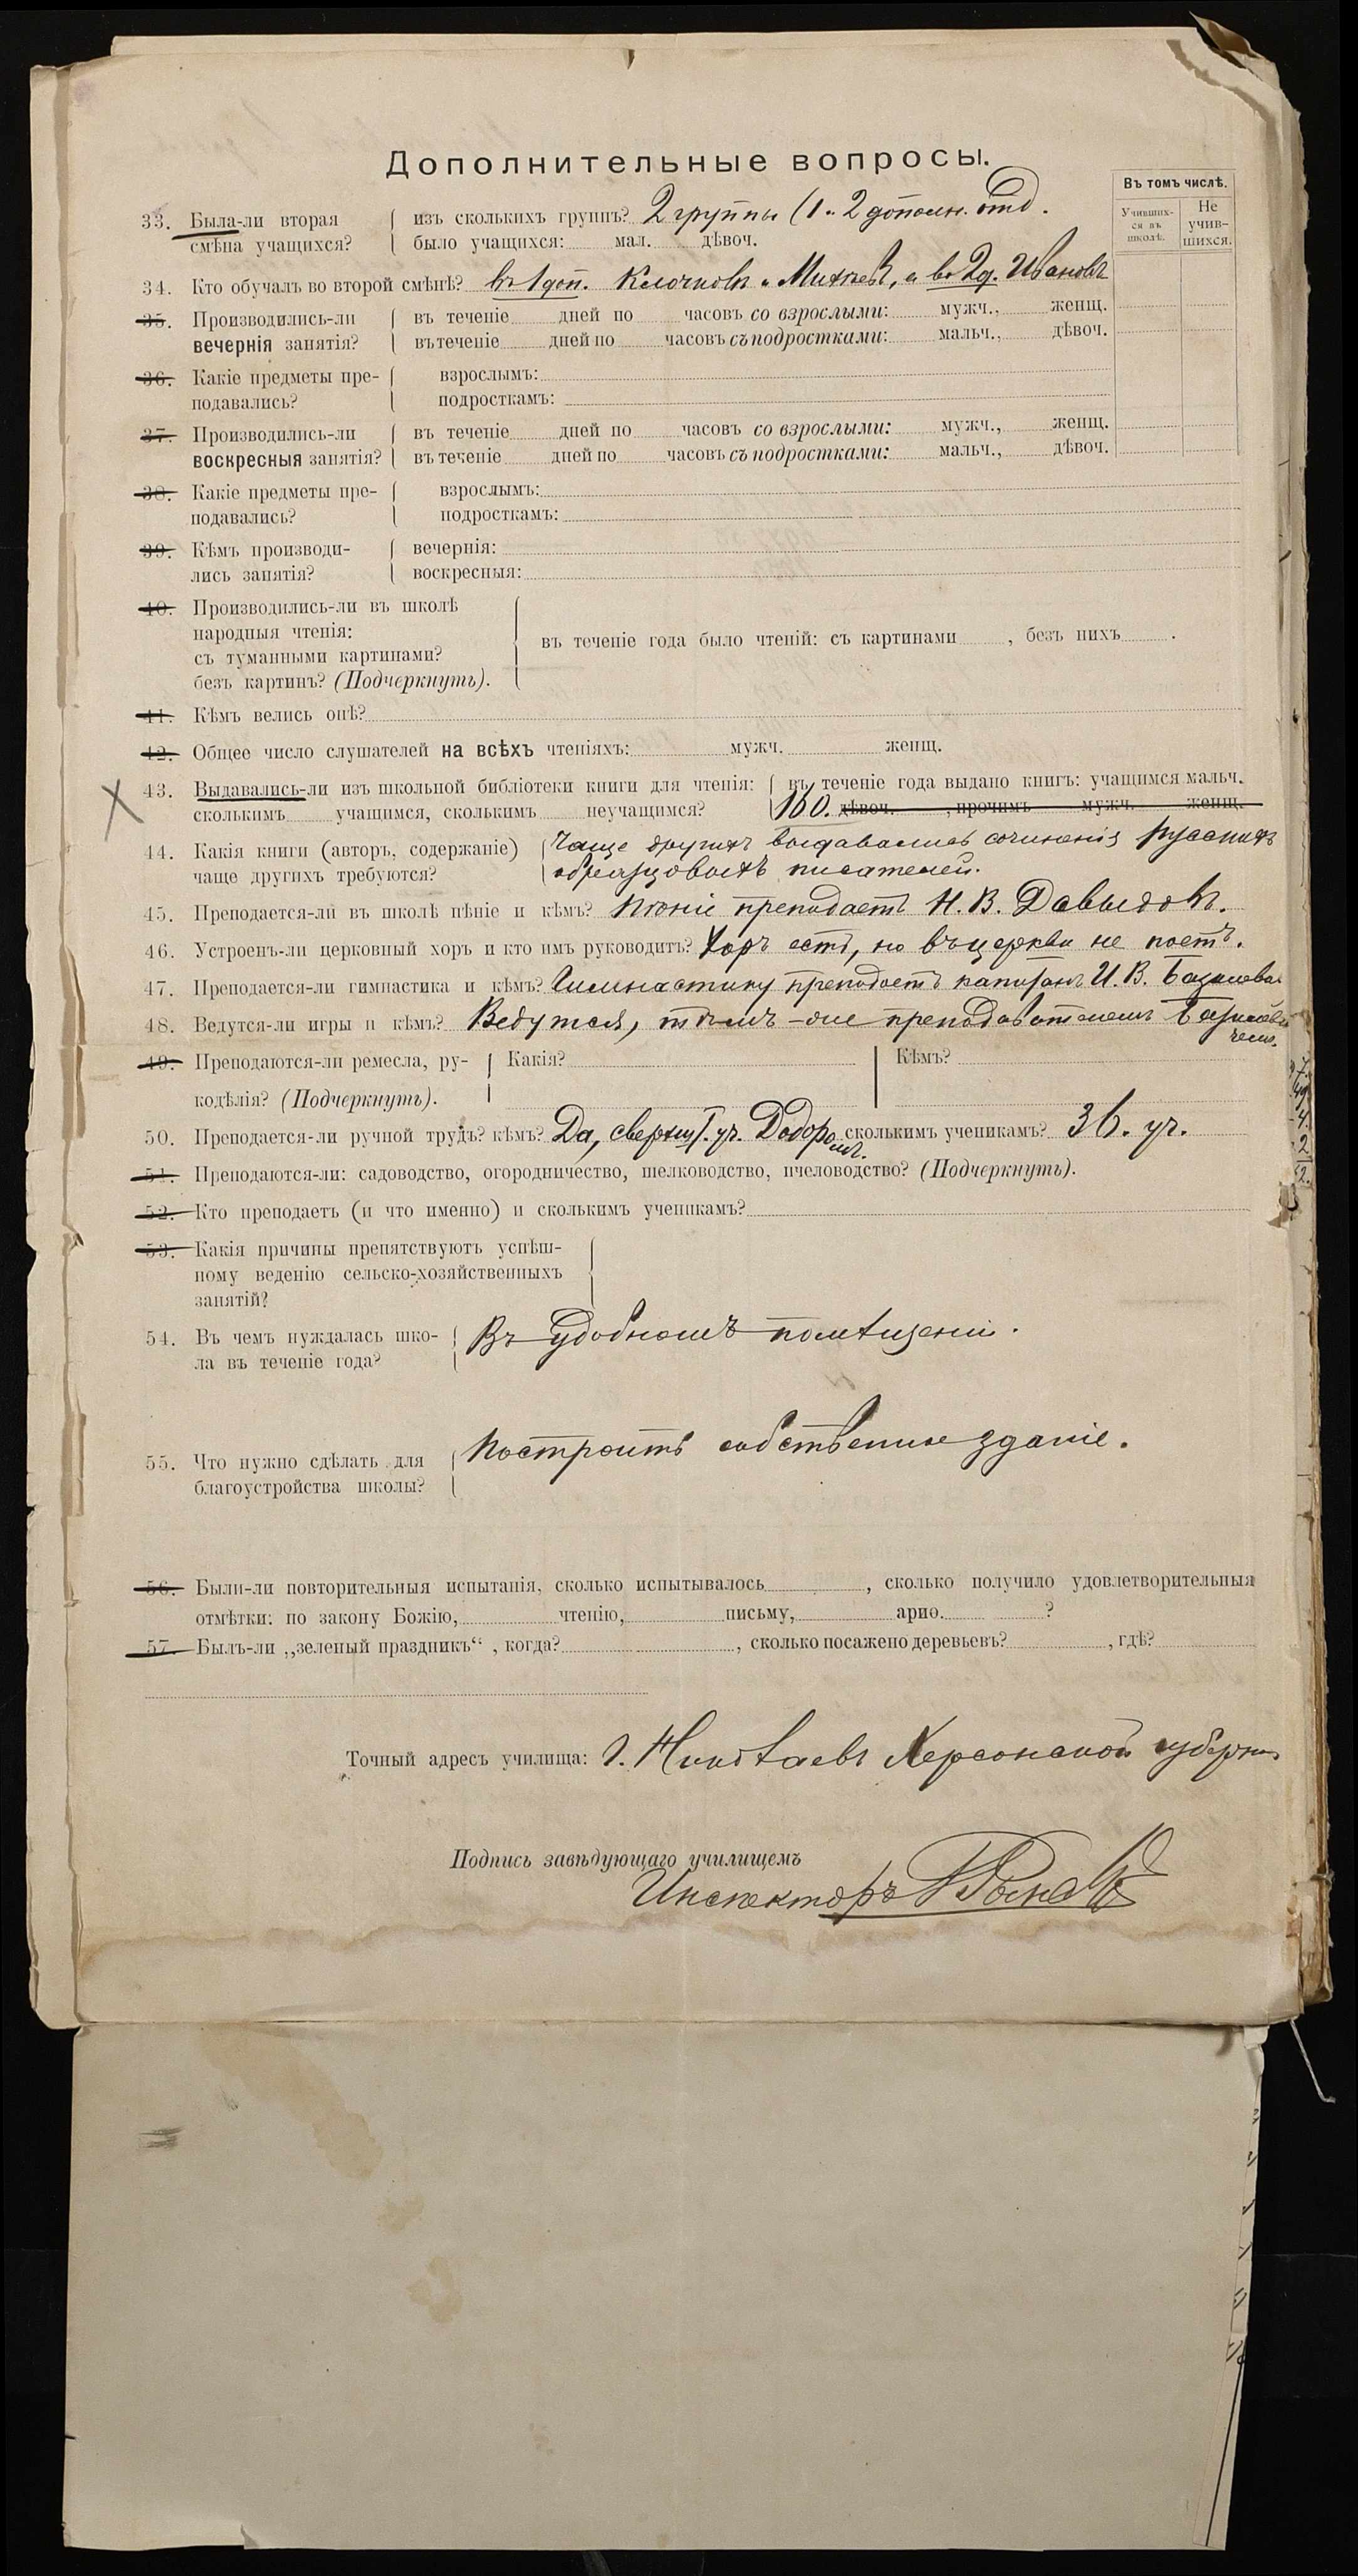 Дополнительные вопросы.
Въ томъ числѣ.
Учивших-
ся въ
школѣ.
Не
учив-
шихся.
33. Была-ли вторая
смѣна учащихся?
изъ сколькихъ группъ? 2 группы (1 и 2 дополн. отд.
было учащихся: мал. дѣвоч.
34. Кто обучалъ во второй смѣнѣ? въ 1 доп. Клочковъ и Михѣевъ, а во 2 д. Ивановъ
35. Производились-ли
вечернія занятія?
въ теченіе дней по часовъ со взрослыми: мужч., женщ.
въ теченіе дней по часовъ съ подростками: мальч., дѣвоч.
36. Какіе предметы пре-
подавались?
взрослымъ:
подросткамъ:
37. Производились-ли
воскресныя занятія?
въ теченіе дней по часовъ со взрослыми: мужч., женщ.
въ теченіе дней по часовъ съ подростками: мальч., дѣвоч.
38. Какіе предметы пре-
подавались?
взрослымъ:
подросткамъ:
39. Кѣмъ производи-
лись занятія?
вечернія:
воскресныя:
40. Производились-ли въ школѣ
народныя чтенія:
съ туманными картинами?
безъ картинъ? (Подчеркнуть).
въ теченіе года было чтеній: съ картинами , безъ нихъ .
41. Кѣмъ велись онѣ?
42. Общее число слушателей на всѣхъ чтеніяхъ: мужч. женщ.
43. Выдавались-ли изъ школьной библіотеки книги для чтенія:
сколькимъ учащимся, сколькимъ неучащимся?
въ теченіе года выдано книгъ: учащимся мальч.
160. дѣвоч. , прочимъ мужч. женщ.
44. Какія книги (авторъ, содержаніе)
чаще другихъ требуются?
Чаще другихъ выдавались сочиненія русскихъ
образцовыхъ писателей.
45. Преподается-ли въ школѣ пѣніе и кѣмъ? Пѣніе преподаетъ Н. В. Давыдовъ.
46. Устроенъ-ли церковный хоръ и кто имъ руководитъ? Хоръ есть, но въ церкви не поетъ.
47. Преподается-ли гимнастика и кѣмъ? Гимнастику преподаетъ капитанъ И. В.
48. Ведутся-ли игры и кѣмъ? Ведутся, тѣмъ-же преподавателемъ
49. Преподаются-ли ремесла, ру-
кодѣлія? (Подчеркнуть).
Какія?
Кѣмъ?
50. Преподается-ли ручной трудъ? кѣмъ? Да, сверхшт. уч. сколькимъ ученикамъ? 36. уч.
51. Преподаются-ли: садоводство, огородничество, шелководство, пчеловодство? (Подчеркнуть).
52. Кто преподаетъ (и что именно) и сколькимъ ученикамъ?
53. Какія причины препятствуютъ успѣш-
ному веденію сельско-хозяйственныхъ
занятій?
54. Въ чемъ нуждалась шко-
ла въ теченіе года?
Въ удобномъ помѣщеніи.
55. Что нужно сдѣлать для
благоустройства школы?
Построить собственное зданіе.
56. Были-ли повторительныя испытанія, сколько испытывалось , сколько получило удовлетворительныя
отмѣтки: по закону Божію, чтенію, письму, ариѳ. ?
57. Былъ-ли „зеленый праздникъ“ , когда? , сколько посажено деревьевъ? , гдѣ?
Точный адресъ училища: г. Николаевъ Херсонской губерніи
Подпись завѣдующаго училищемъ
Инспекторъ